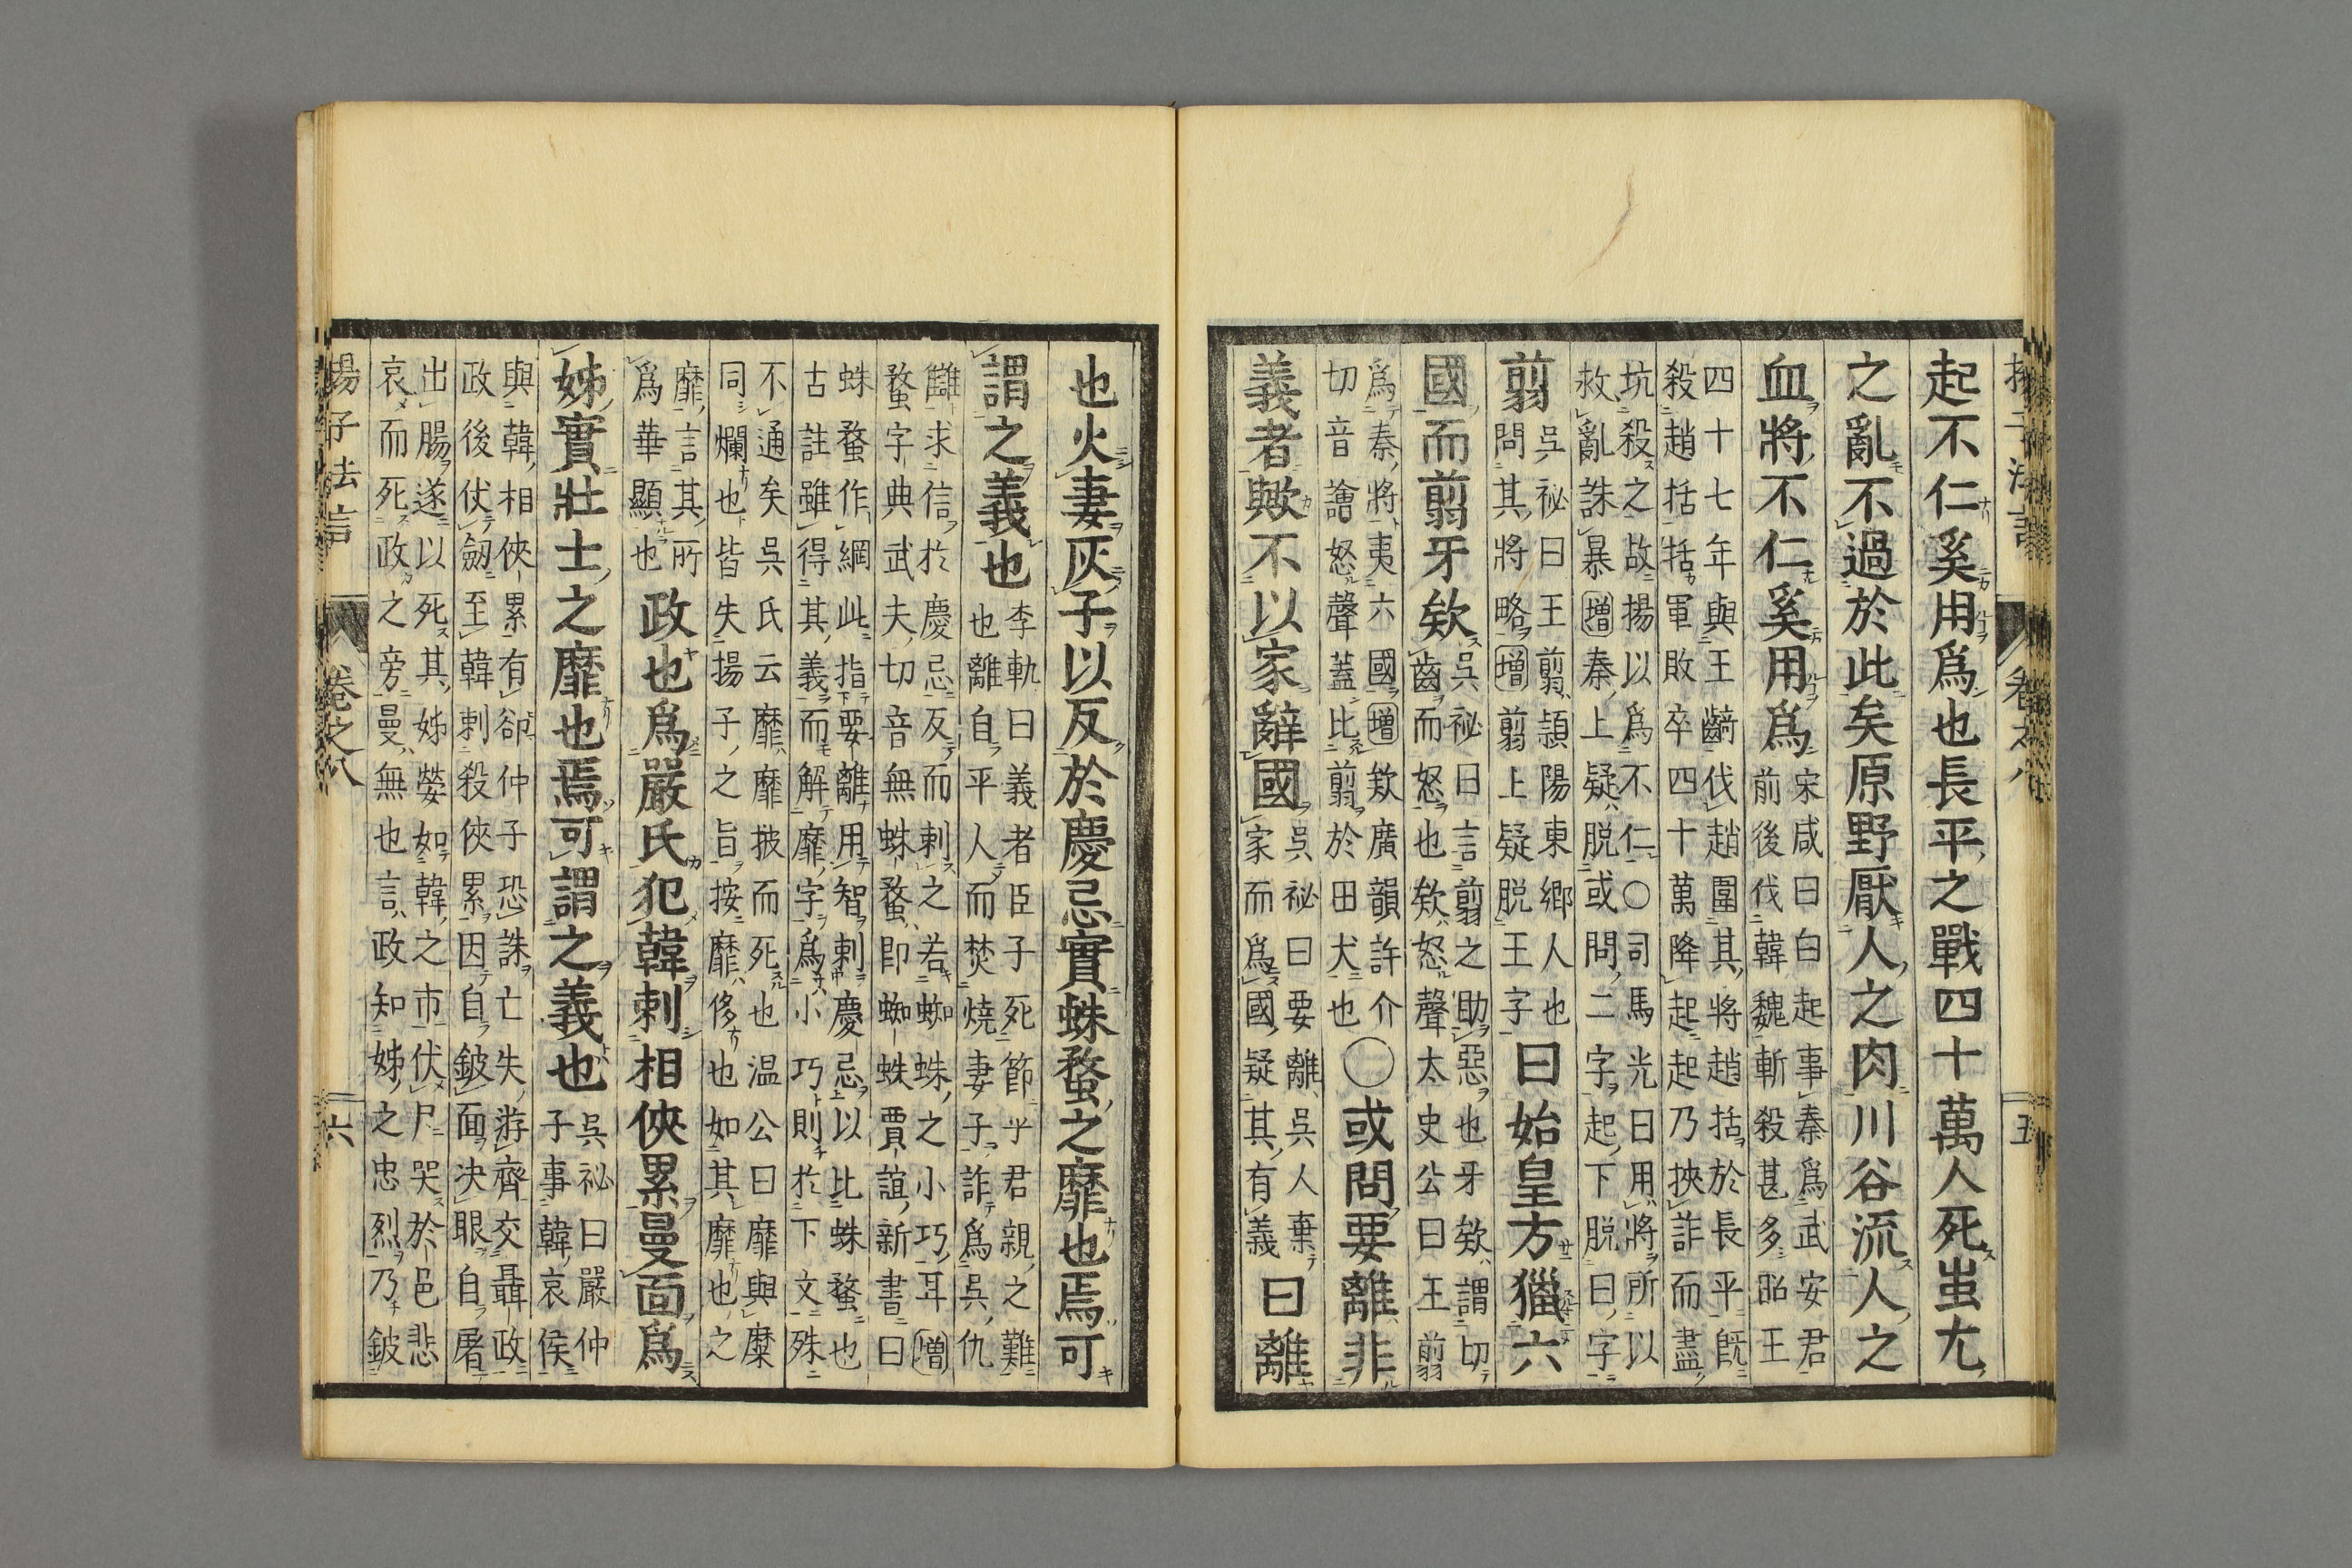 揚子法言 卷之八 五
起不仁奚用爲也長平之戰四十萬人死蚩尤
之亂不過於此矣原野厭人之肉川谷流人之
血將不仁奚用爲宋咸曰白起事秦爲武安君
前後伐韓魏斬殺甚多昭王
四十七年與王齮伐趙圍其將趙括於長平旣
殺趙括括軍敗卒四十萬降起起乃挾詐而盡
坑殺之故揚以爲不仁○司馬光曰用將所以
救亂誅暴增秦上疑脱或問二字起下脱曰字
翦吳祕曰王翦頴陽東鄉人也
問其將略增翦上疑脱王字
曰始皇方獵六
國而翦牙欸吳祕曰言翦之助惡也牙欸謂切
齒而怒也欸怒聲太史公曰王翦
爲秦將夷六國增欸廣韻許介
切音譮怒聲蓋比翦於田犬也
○或問要離非
義者歟不以家辭國吳祕曰要離吳人棄
家而爲國疑其有義
曰離
也火妻灰子以反於慶忌實蛛蝥之靡也焉可
謂之義也李軌曰義者臣子死節乎君親之難
也離自平人而焚燒妻子詐爲吳仇
讎求信於慶忌反而剌之若蜘蛛之小巧耳增
蝥字典武夫切音無蛛蝥卽蜘蛛賈誼新書曰
蛛蝥作綱此指要離用智剌慶忌以比蛛蝥也
古註雖得其義而解靡字爲小巧則於下文殊
不通矣吳氏云靡靡披而死也温公曰靡與糜
同爛也皆失揚子之旨按靡侈也如其靡也之
靡言其所
爲華顯也
政也爲嚴氏犯韓剌相俠累曼面爲
姊實壯士之靡也焉可謂之義也吳祕曰嚴仲
子事韓哀侯
與韓相俠累有郤仲子恐誅亡失游齊交聶政
政後伏劒至韓剌殺俠累因自鈹面決眼自屠
出腸遂以死其姊嫈如韓之市伏尸哭於邑悲
哀而死政之旁曼無也言政知姊之忠烈乃鈹
揚子法言 卷之八 六